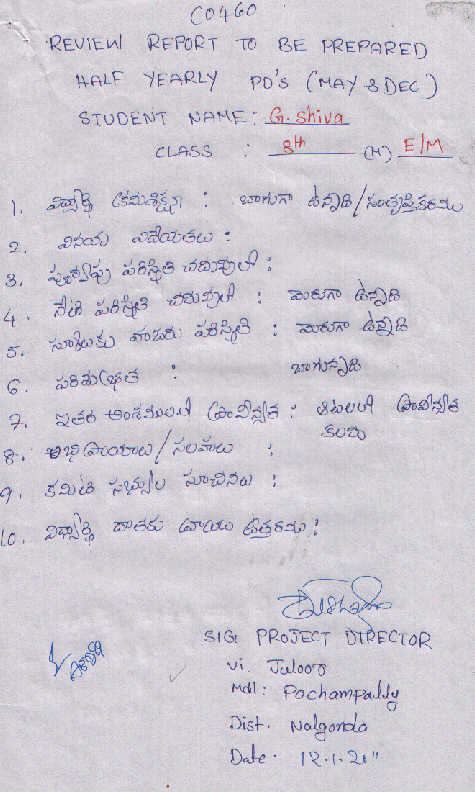 CO460
REVIEW REPORT TO BE PREPARED
HALF YEARLY PD'S (MAY & DEC)
STUDENT NAME: G. Shiva
CLASS : 8th (M) E/M
1. విద్యార్థి క్రమశిక్షణ : బాగుగా ఉన్నది/సంతృప్తికరము
2. వినయ విదేయతలు :
3. పూర్వపు పరిస్థితి చదువులో :
4. నేటి పరిస్థితి చదువులో : మెరుగా ఉన్నది
5. స్కూలుకు హాజరు పరిస్థితి : మెరుగా ఉన్నది
6. పరిశుభ్రత : బాగున్నది
7. ఇతర అంశములలో ప్రావీణ్యత : ఆటలలో ప్రావీణ్యత
కలదు
8. అభిప్రాయాలు/సలహాలు :
9. కమిటి సభ్యుల సూచనలు :
10. విద్యార్థి దాతకు వ్రాయు ఉత్తరము :
SIG PROJECT DIRECTOR
Vi. Juloor
Mdl: Pochampally
Dist. Nalgonda
Date. 12.1.21"